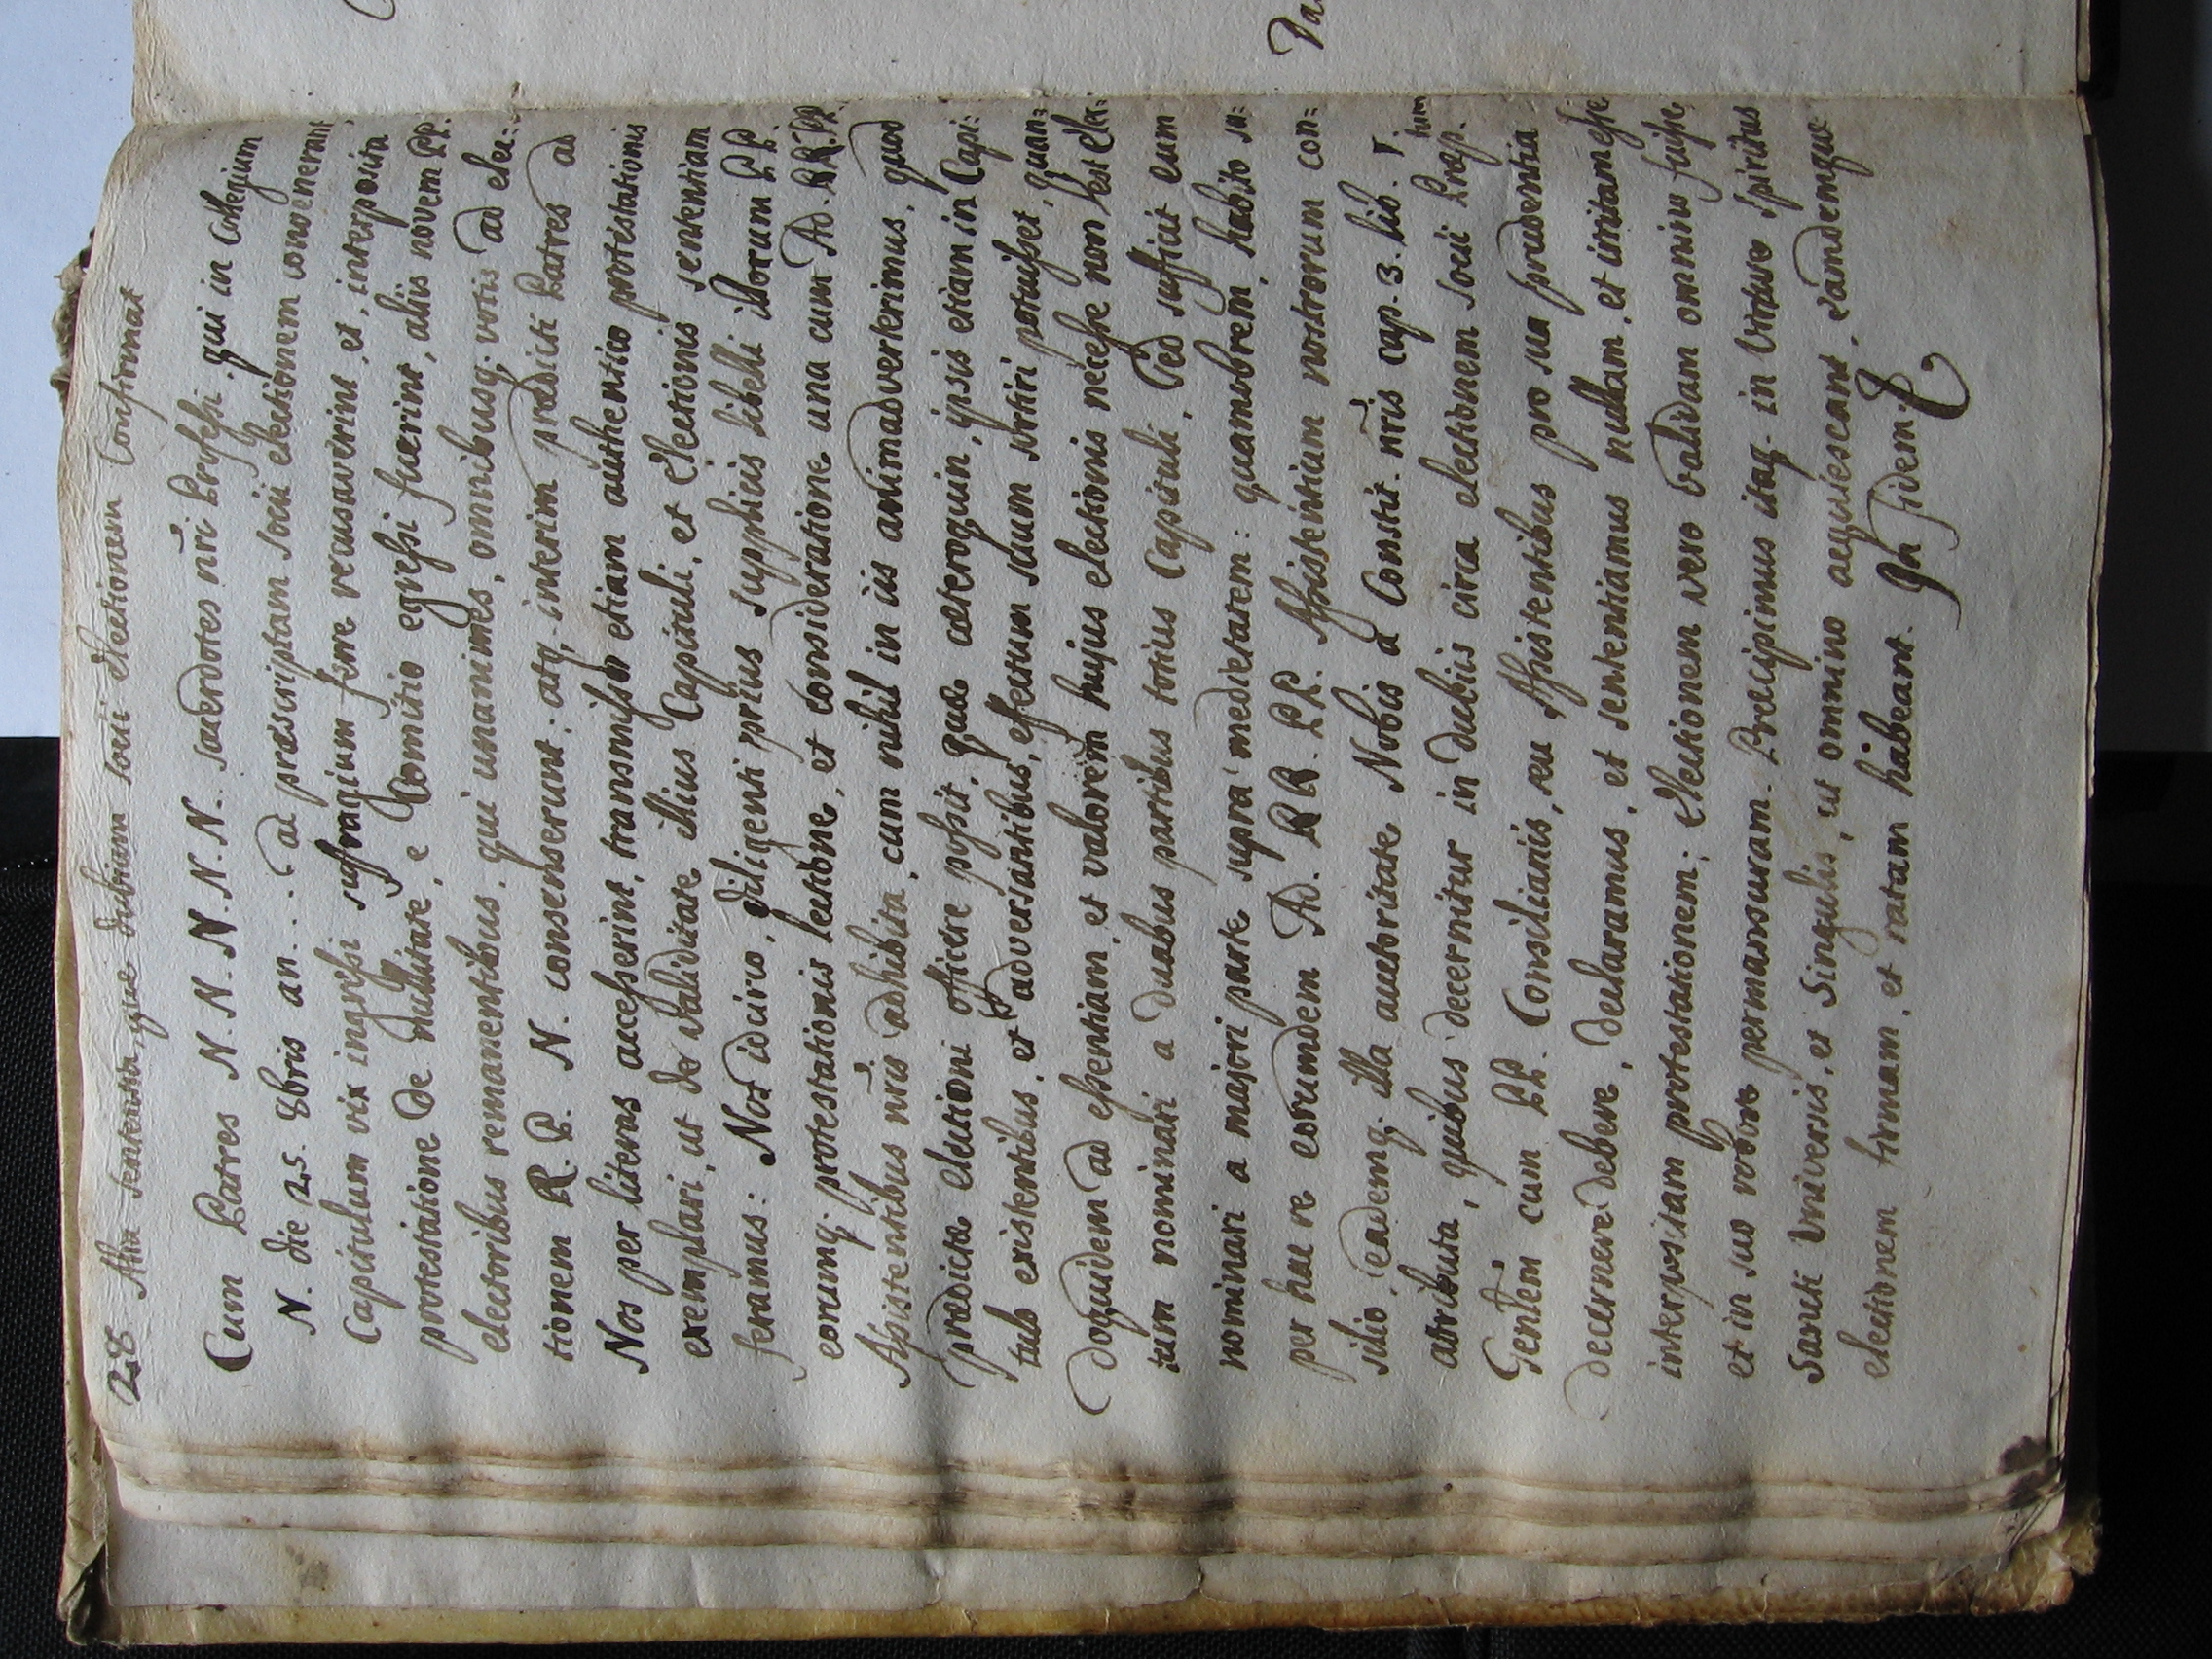 28 Alia sententia, quae dubiam socii electionem confirmat
Cum Patres N. N. N. N. N. sacerdotes nr̃i Professi, qui in Collegium
N. die 25. 8bris an. . . ad praescriptam socii electionem convenerant,
Capitulum vix ingressi suffragium ferre recusaverint, et, interposita
protestatione de nullitate, e Comitio egressi fuerint, aliis novem PP.
electoribus remanentibus, qui unanimes, omnibusq. votis ad elec=
tionem R. P. N. consenserunt: atq. interim praedicti Patres ad
Nos per literas accesserint, transmisso etiam authentico protestationis
exemplari, ut de validitate illius Capituli, et electionis sententiam
feramus: Nos idcirco, diligenti prius supplicis libelli illorum PP.
eorumq. protestationis lectione, et consideratione una cum Ad. RR. PP.
Assistentibus nr̃is adhibita, cum nihil in iis animadverterimus, quod
praedictae electioni officere possit, quae caeteroquin, ipsis etiam in Capi=
tulo existentibus, et adversantibus, effectum suum sortiri potuisset, quan=
doquidem ad essentiam, et valorem hujus electionis necesse non est elec=
tum nominari a duabus partibus totius Capituli, sed sufficit eum
nominari a majori parte supra medietatem: quamobrem, habito su=
per hac re eorumdem Ad. RR. PP. Assistentium nostrorum con=
silio, eademq. illa auctoritate Nobis a Constit. nr̃is cap. 3. lib. 1.
tum
attributa, quibus decernitur in dubiis circa electionem socii Praep.
Gentem cum PP. Consiliariis, seu Assistentibus pro sua prudentia
decernere debere, declaramus, et sententiamus nullam, et irritam esse
interpositam protestationem; Electionem vero validam omnino fuisse,
et in suo robore permansuram. Praecipimus itaq. in virtute Spiritus
Sancti Universis, et Singulis, ut omnino acquiescant, eamdemque
electionem firmam, et ratam habeant. In fidem &